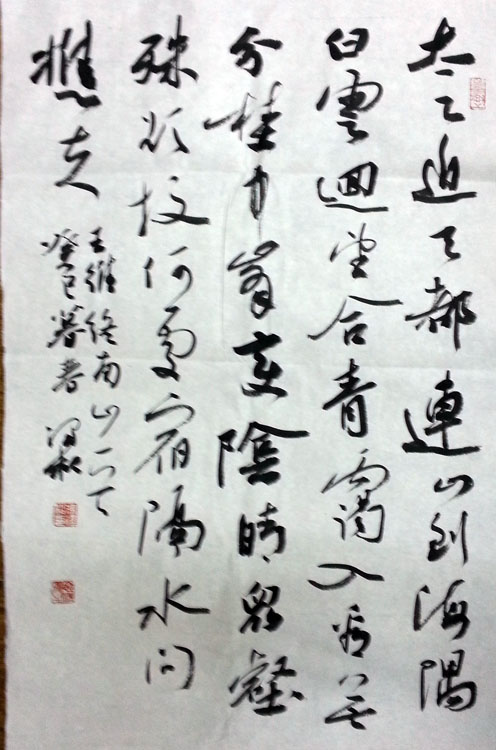 太乙近天都連山到海隅
白雲迴望合青靄入看無
分埜中峯變陰晴眾壑
殊欲投何處宿隔水問
樵夫
王維終南山一首
癸巳暮春